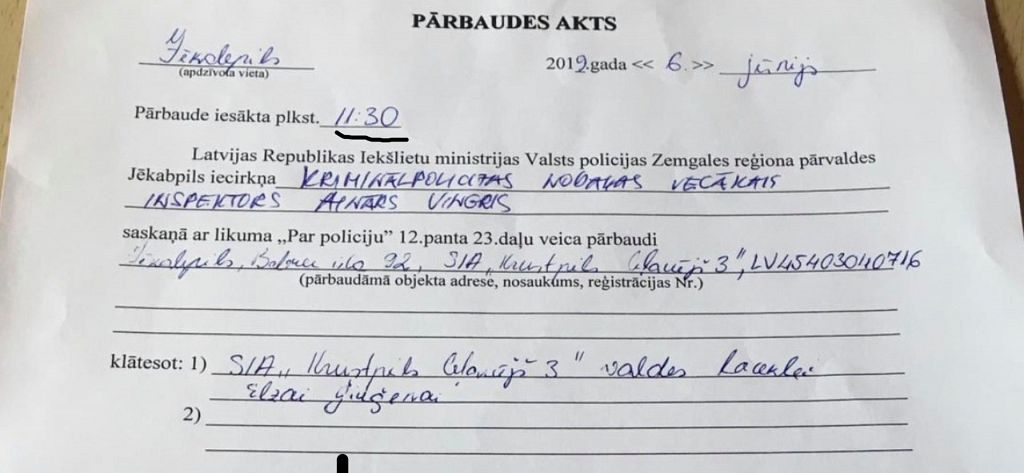 PĀRBAUDES AKTS
Jēkabpils 2019.gada << 6. >> jūnijs
(apdzīvota vieta)
Pārbaude iesākta plkst. 11:30
Latvijas Republikas Iekšlietu ministrijas Valsts policijas Zemgales reģiona pārvaldes
Jēkabpils iecirkņa KRIMINĀLPOLICIJAS NODAĻAS VECĀKAIS
INSPEKTORS AINĀRS VINGRIS
saskaņā ar likuma „Par policiju" 12.panta 23.daļu veica pārbaudi
Jēkabpils, 92, SIA „Krustpils 3", LV45403040716
(pārbaudāmā objekta adrese, nosaukums, reģistrācijas Nr.)
klātesot: 1) SIA „Krustpils 3" valdes loceklei
Elzai
2)